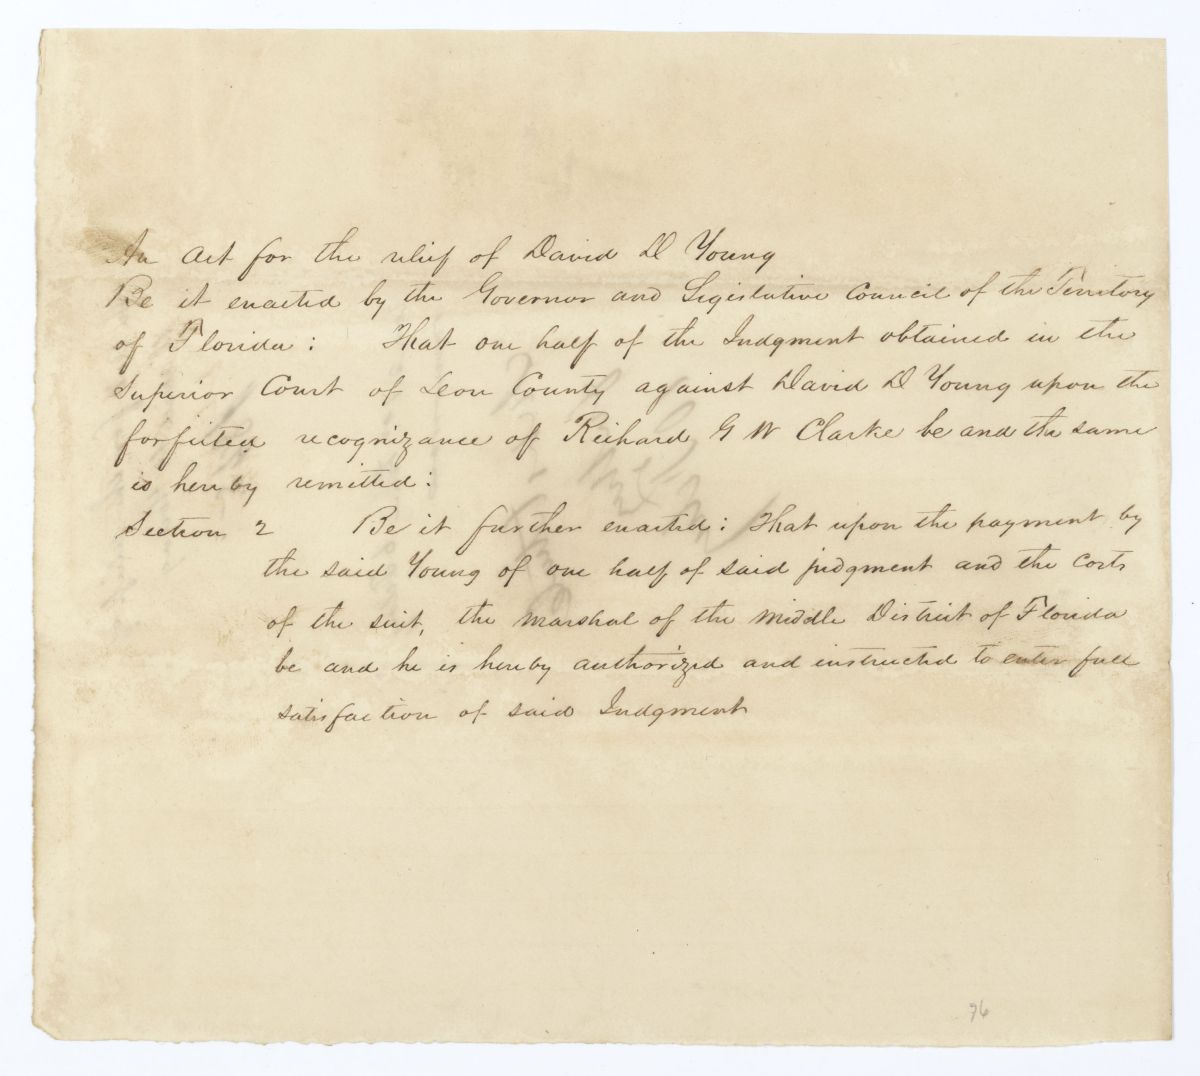 An Act for the relief of David D Young
Be it enacted by the Governor and Legislative Council of the Territory
of Florida: That one half of the Judgment obtained in the
Superior Court of Leon County against David D Young upon the
forfeited recognizance of Richard G W Clarke be and the same
is hereby remitted:
Section 2 Be it further enacted: That upon the payment by
the said Young of one half of said judgment and the costs
of the suit, the Marshal of the Middle District of Florida
be and he is hereby authorized and instructed to enter full
satisfaction of said Judgment
96